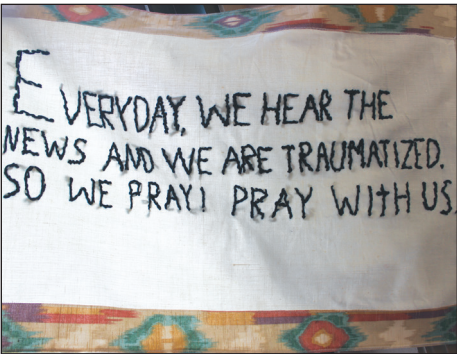 EVERYDAY, WE HEAR THE
NEWS AND WE ARE TRAUMATIZED.
SO WE PRAY! PRAY WITH US.